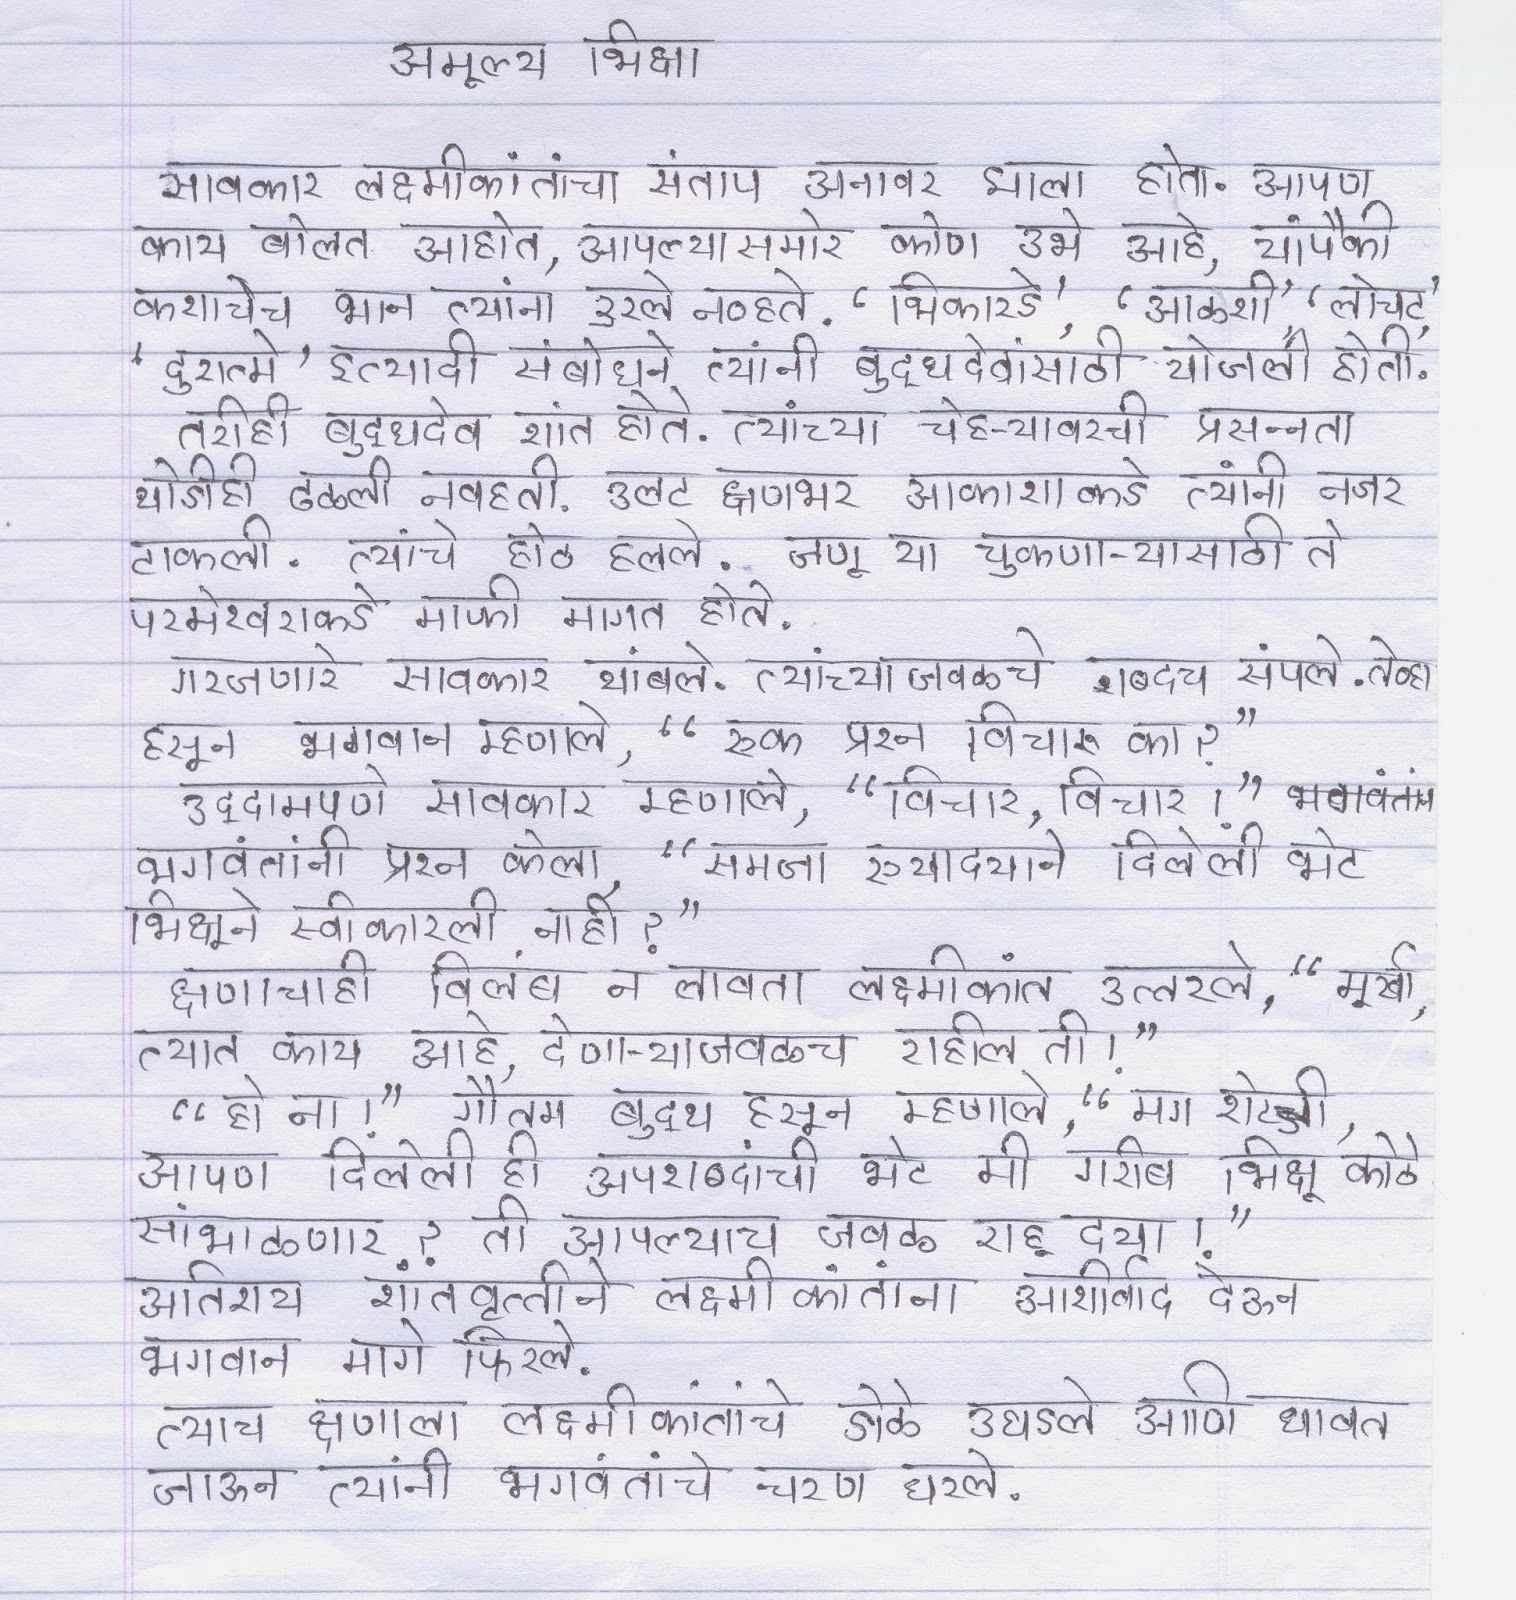 अमूल्य भिक्षा
सावकार लक्ष्मीकांतांचा संताप अनावर झाला होता. आपण
काय बोलत आहोत, आपल्यासमोर कोण उभे आहे, यांपैकी
कशाचेच भान त्यांना उरले नव्हते. ‘भिकारडे’, ‘आळशी’, ‘लोचट’,
‘दुरात्मे’ इत्यादी संबोधने त्यांनी बुद्धदेवांसाठी योजली होती.
तरीही बुद्धदेव शांत होते. त्यांच्या चेहऱ्यावरची प्रसन्नता
थोडीही ढळली नव्हती. उलट क्षणभर आकाशाकडे त्यांनी नजर
टाकली. त्यांचे होठ हलले. जणू या चुकणाऱ्यासाठी ते
परमेश्वराकडे माफी मागत होते.
गरजणारे सावकार थांबले. त्यांच्याजवळचे शब्दच संपले. तेव्हा
हसून भगवान म्हणाले, “एक प्रश्न विचारू का?”
उद्दामपणे सावकार म्हणाले, “विचार, विचार!”
भगवंतांनी प्रश्न केला, “समजा एखाद्याने दिलेली भेट
भिक्षूने स्वीकारली नाही?”
क्षणाचाही विलंब न लावता लक्ष्मीकांत उत्तरले, “मूर्खा,
त्यात काय आहे, देणाऱ्याजवळच राहील ती!”
“हो ना!” गौतम बुद्ध हसून म्हणाले, “मग शेटजी,
आपण दिलेली ही अपशब्दांची भेट मी गरीब भिक्षू कोठे
सांभाळणार? ती आपल्याच जवळ राहू द्या!”
अतिशय शांतवृत्तीने लक्ष्मीकांतांना आशीर्वाद देऊन
भगवान मागे फिरले.
त्याच क्षणाला लक्ष्मीकांतांचे डोळे उघडले आणि धावत
जाऊन त्यांनी भगवंतांचे चरण धरले.